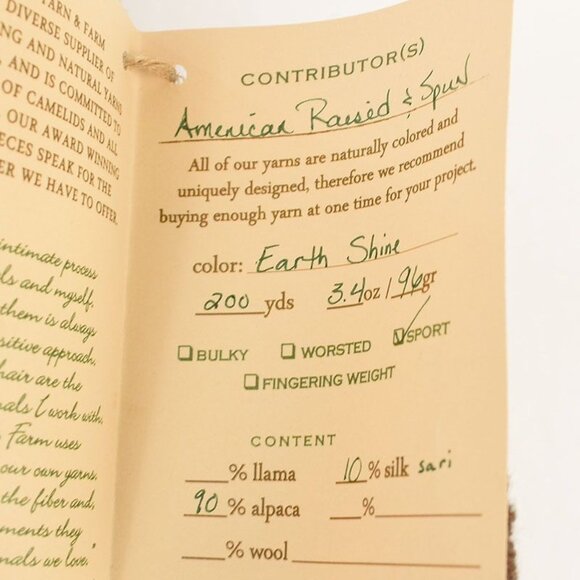 YARN & FARM
DIVERSE SUPPLIER OF
ING AND NATURAL YARNS
AND IS COMMITTED TO
OF CAMELIDS AND ALL
OUR AWARD WINNING
ECES SPEAK FOR THE
ER WE HAVE TO OFFER.
intimate process
ls and myself.
them is always
sitive approach.
hair are the
mals I work with.
Farm uses
our own yarns.
the fiber and,
ments they
mals we love."
CONTRIBUTOR(S)
American Raised & Spun
All of our yarns are naturally colored and
uniquely designed, therefore we recommend
buying enough yarn at one time for your project.
color: Earth Shine
200 yds 3.4oz / 96gr
☐ BULKY ☐ WORSTED ☑ SPORT
☐ FINGERING WEIGHT
CONTENT
___% llama 10 % silk sari
90 % alpaca ___%___
___% wool ___